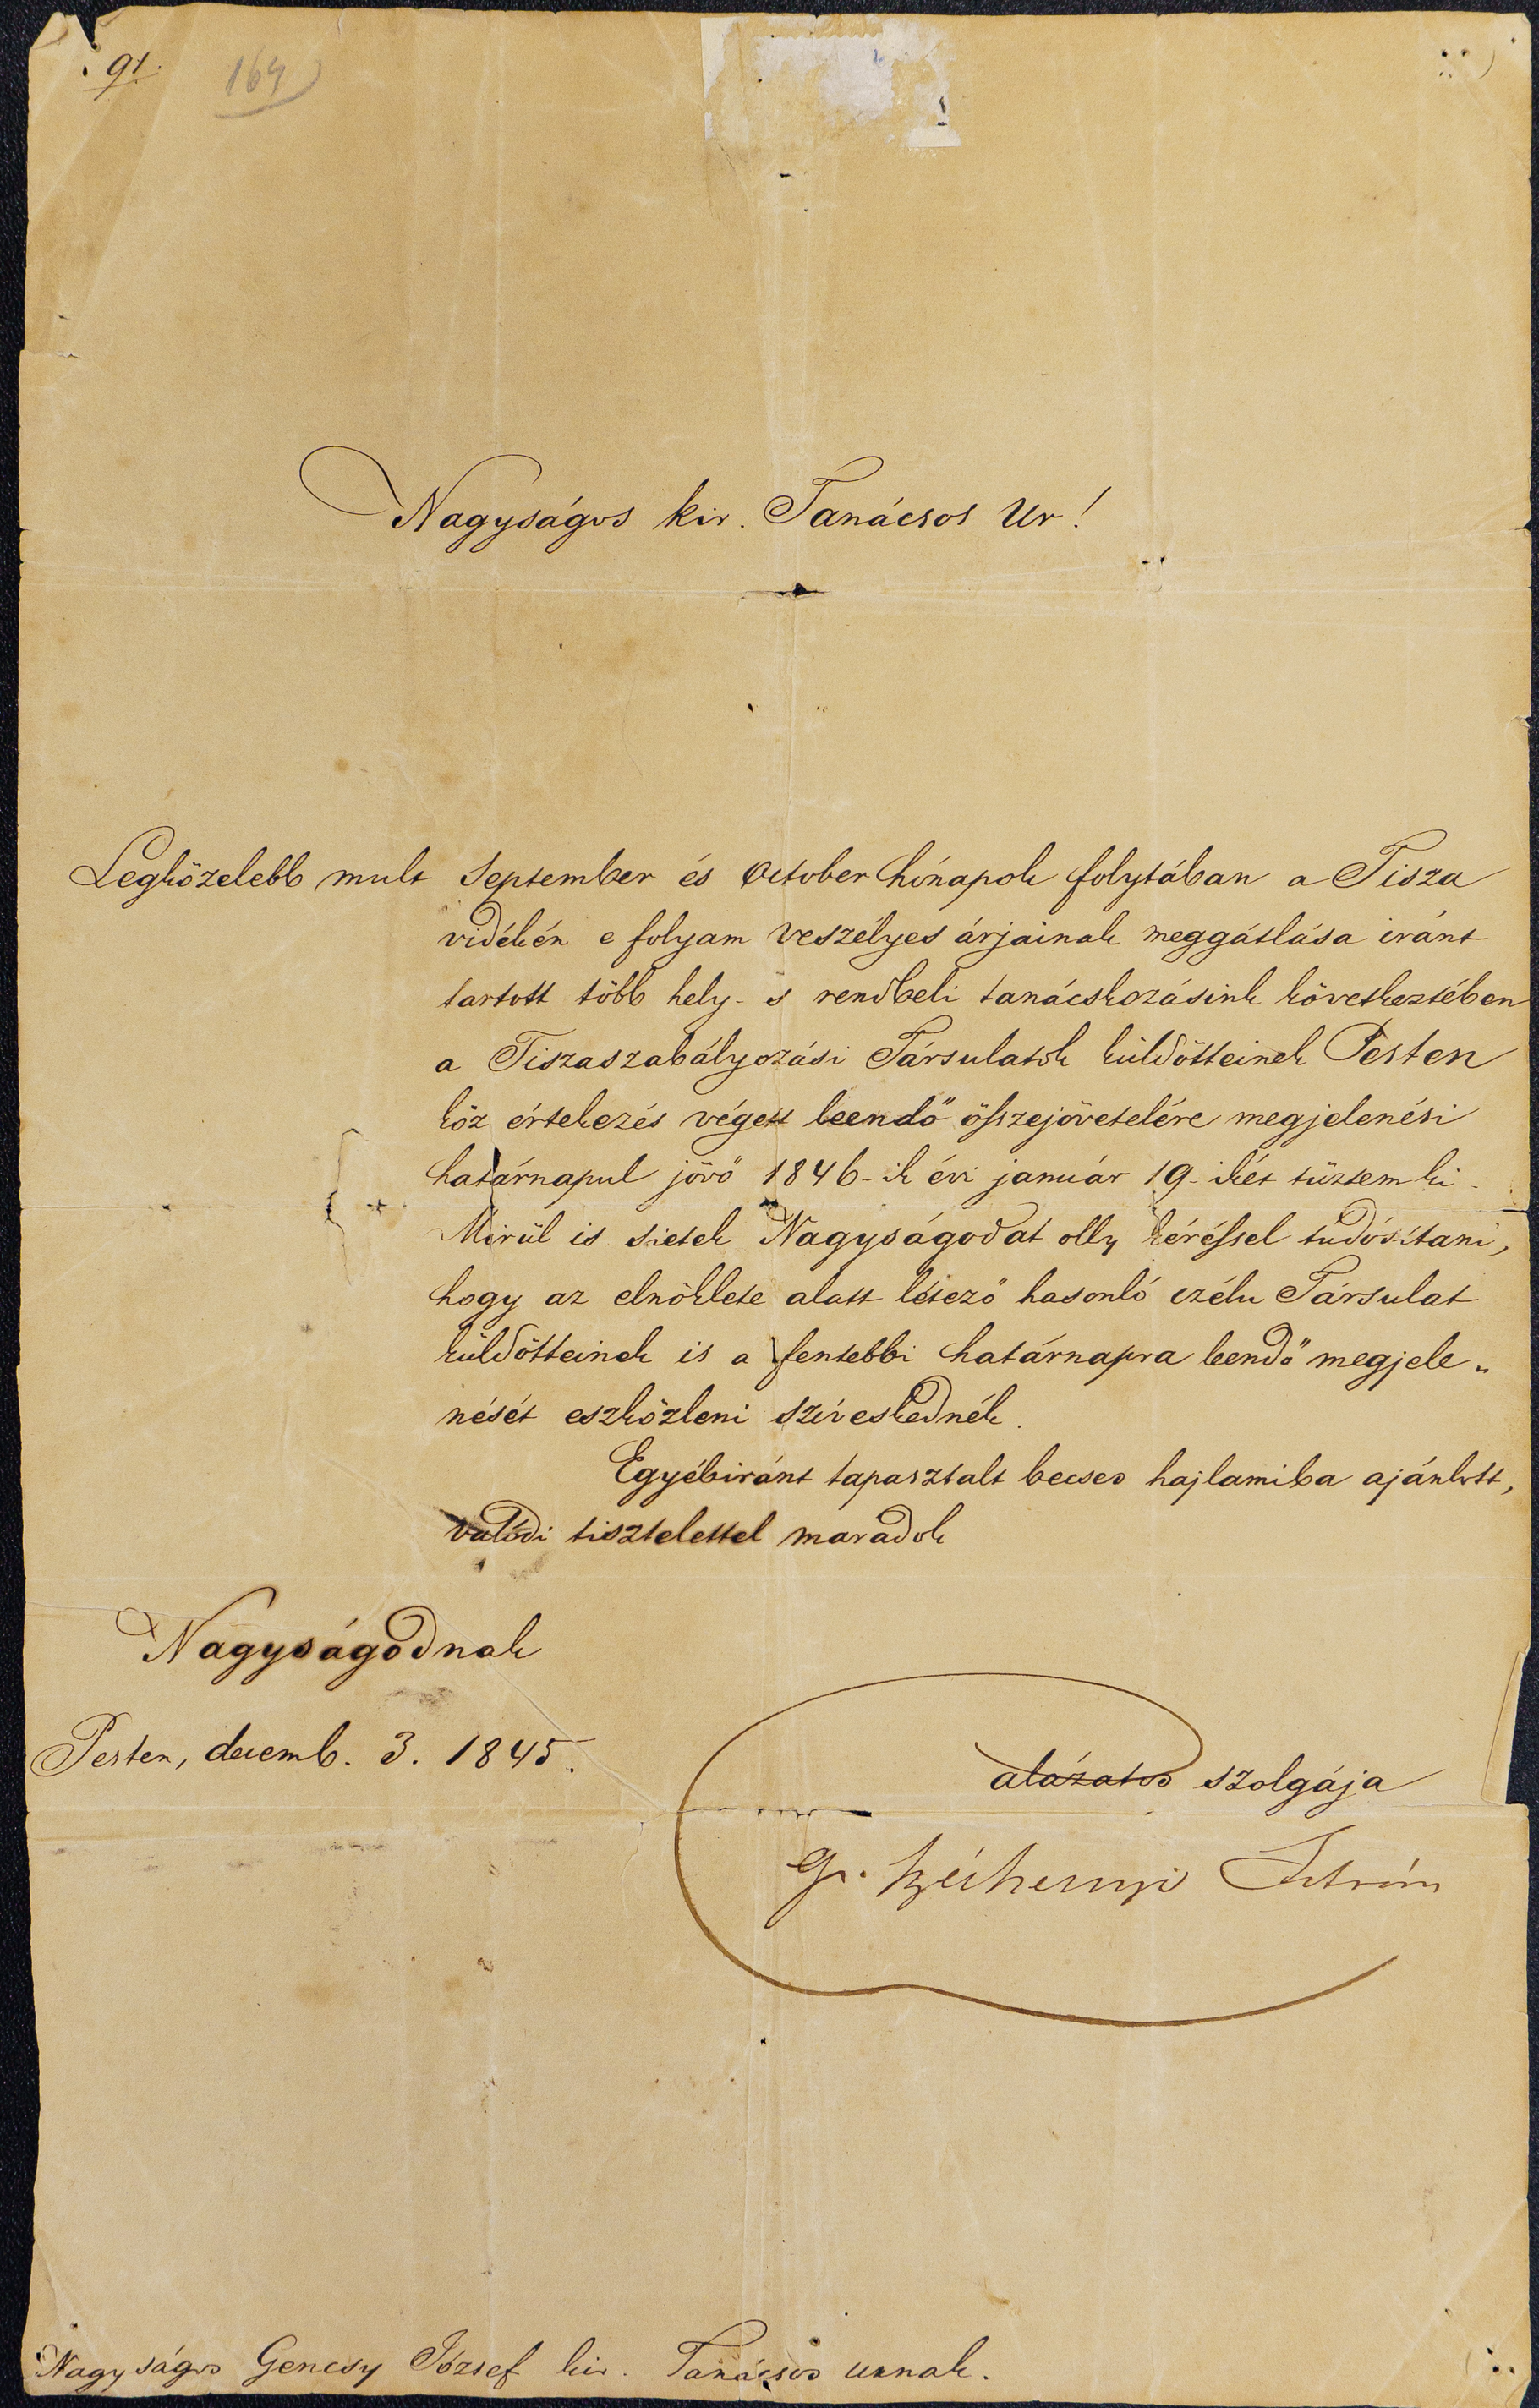 91.
164
Nagyságos kir. Tanácsos Ur!
Legközelebb mult September és October hónapok folytában a Tisza
vidékén e folyam veszélyes árjainak meggátlása iránt
tartott több hely- s rendbeli tanácskozásink következtében
a Tiszaszabályozási Társulatok küldötteinek Pesten
köz értekezés végett leendő öſszejövetelére megjelenési
határnapul jövő 1846-ik évi január 19-ikét tüztem ki.
Mirül is sietek Nagyságodat olly kéréſsel tudósítani,
hogy az elnöklete alatt létező hasonló czélu Társulat
küldötteinek is a fentebbi határnapra leendő megjele„
nését eszközleni sziveskednék.
Egyébiránt tapasztalt becses hajlamiba ajánlott,
valódi tisztelettel maradok
Nagyságodnak
Pesten, decemb. 3. 1845.
alázatos szolgája
Gr. Széchenyi István
Nagyságos Gencsy József kir. Tanácsos urnak.